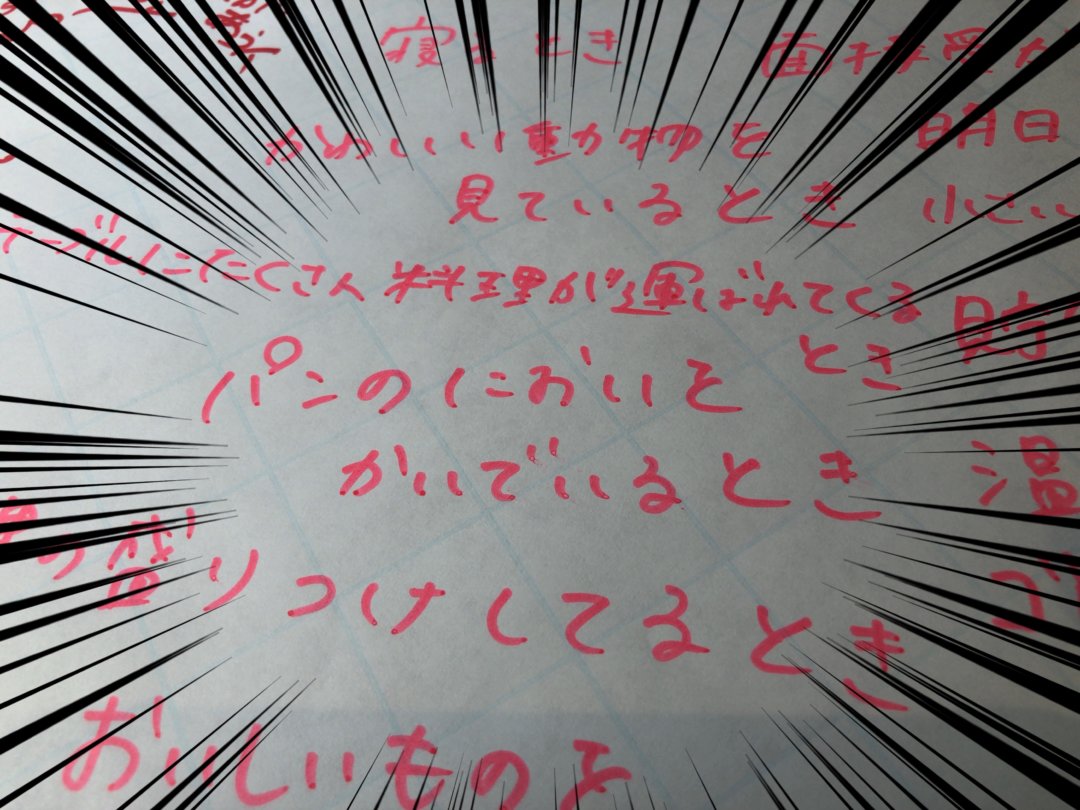 寝るとき
かわいい動物を
見ているとき
テーブルにたくさん料理が運ばれてくる
とき
パンのにおいを
かいでいるとき
の盛りつけしてるとき
おいしいものを
明日
小さい
貯
温